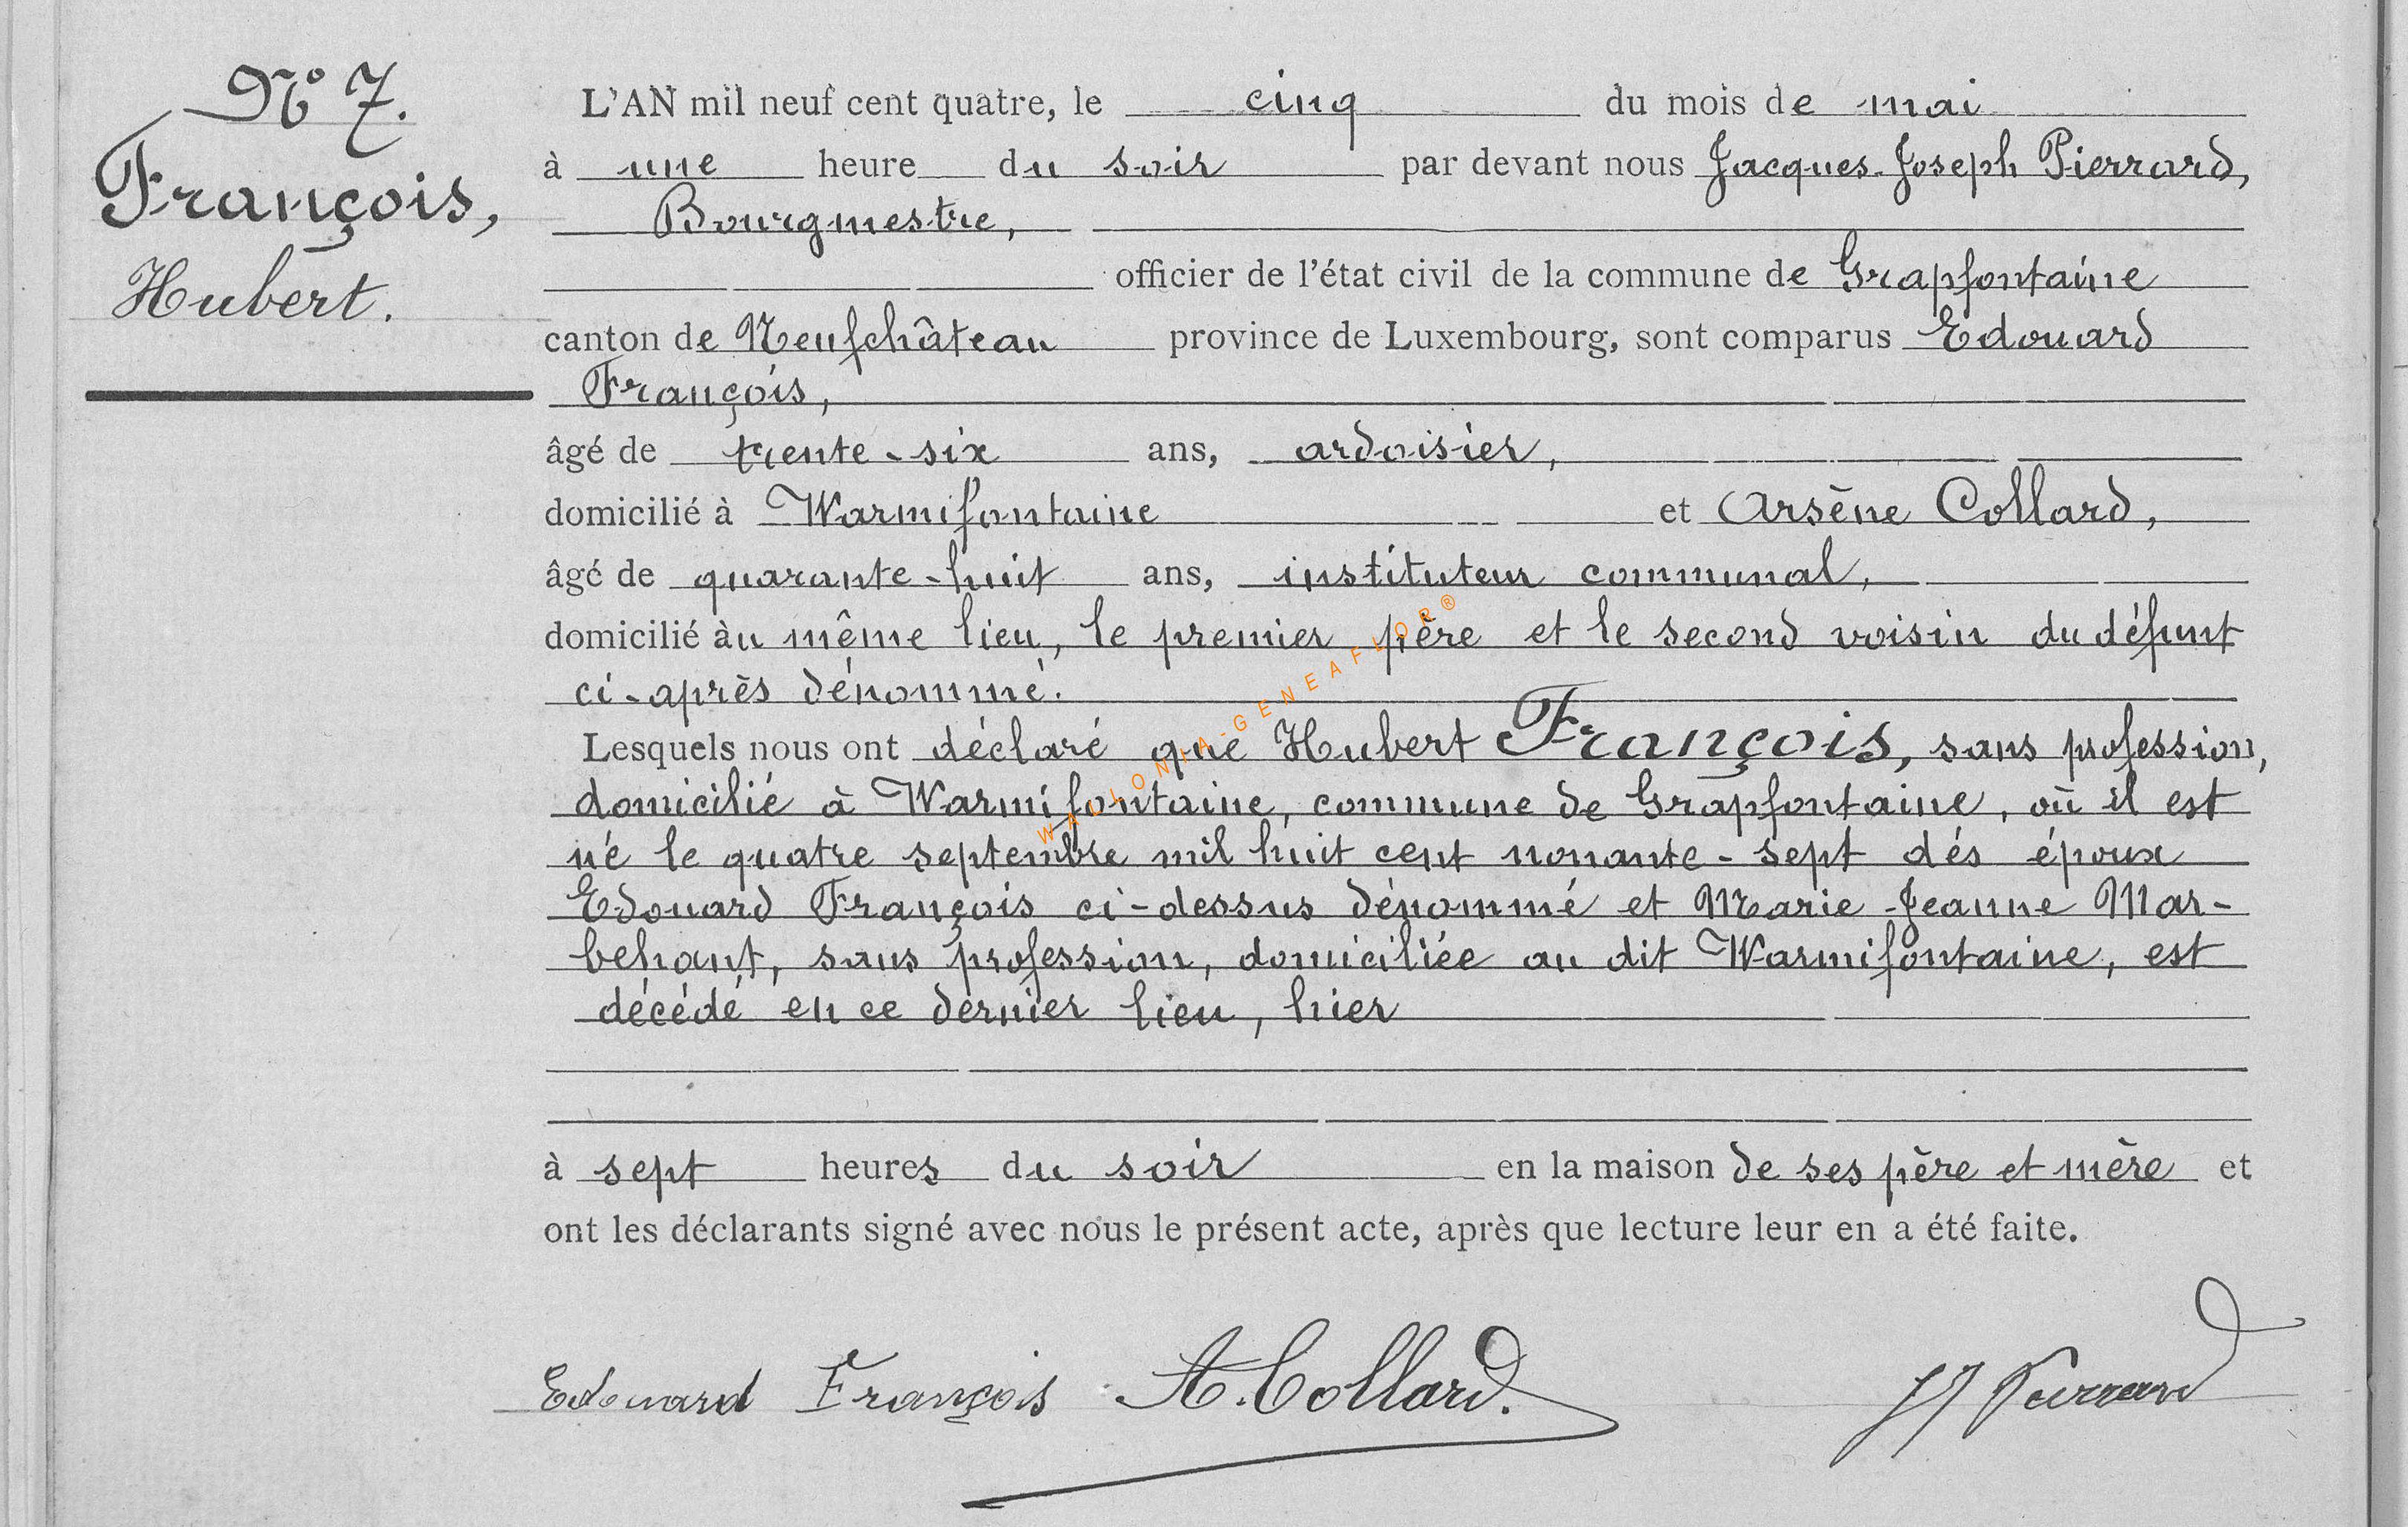 N° 7.
François,
Hubert.
L'AN mil neuf cent quatre, le cinq du mois de mai
à une heure du soir par devant nous Jacques-Joseph Pierrard,
Bourgmestre,
officier de l'état civil de la commune de Grapfontaine
canton de Neufchâteau province de Luxembourg, sont comparus Edouard
François,
âgé de trente-six ans, ardoisier,
domicilié à Warmifontaine et Arsène Collard,
âgé de quarante-huit ans, instituteur communal,
domicilié àu même lieu, le premier père et le second voisin du défunt
ci-après dénommé.
Lesquels nous ont déclaré que Hubert François, sans profession,
domicilié à Warmifontaine, commune de Grapfontaine, où il est
né le quatre septembre mil huit cent nonante-sept dés époux
Edouard François ci-dessus dénommé et Marie-Jeanne Mar-
behant, sans profession, domiciliée au dit Warmifontaine, est
décédé en ce dernier lieu, hier
à sept heures du soir en la maison de ses père et mère et
ont les déclarants signé avec nous le présent acte, après que lecture leur en a été faite.
Edouard François A. Collard. JJ Pierrard
WALLONIA-GENEAFLOR®